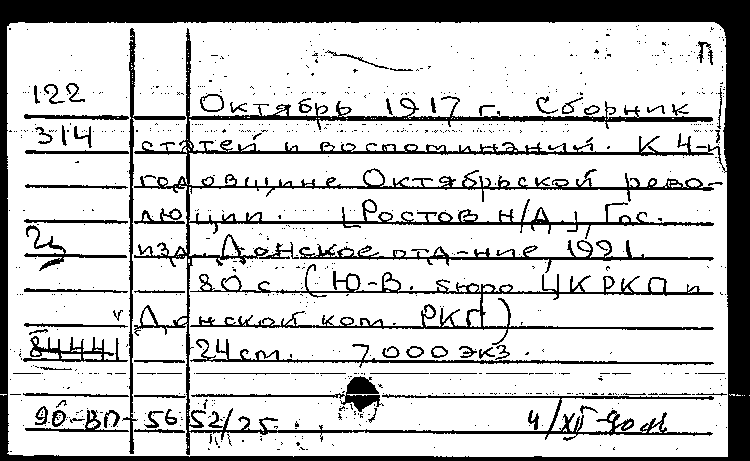 П
122 Октябрь 1917 г. Сборник
314 статей и воспоминаний. К 4-й
годовщине Октябрьской рево-
люции. [Ростов н/Д.], Гос.
изд. Донское отд-ние, 1921.
80 с. (Ю-В. бюро ЦК РКП и
Донской ком. РКП)
84441 24 см. 7.000 экз.
90-ВП-5652/25
4/XII-90